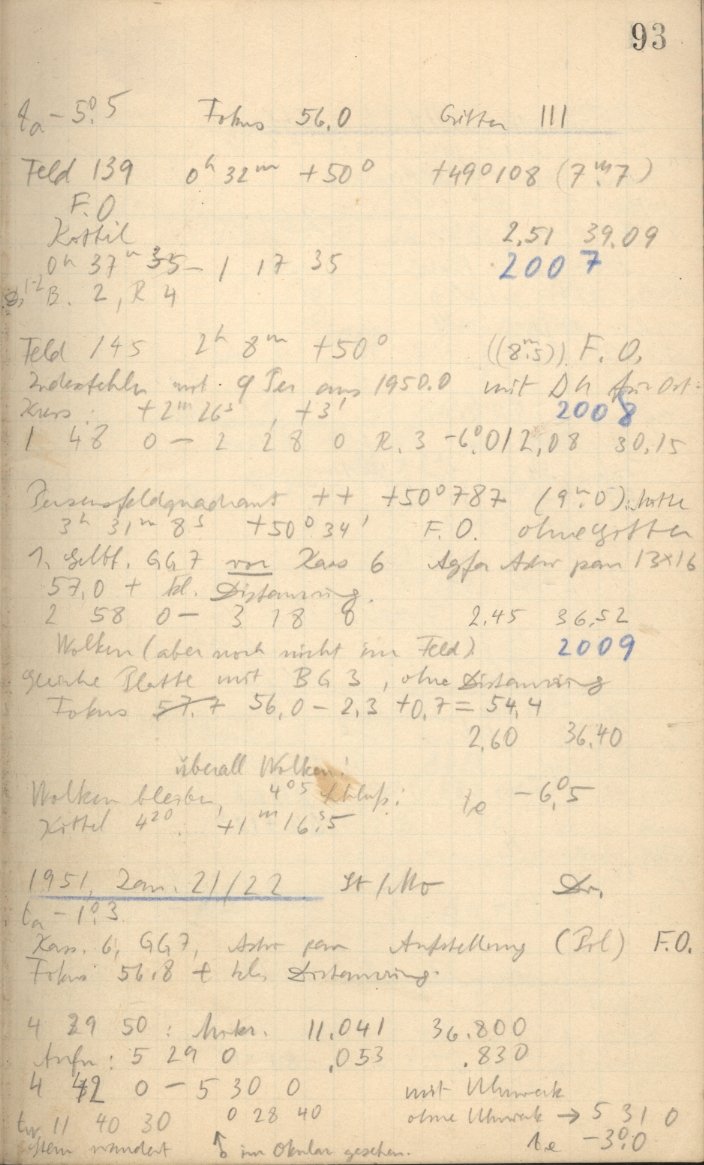 93
ta -5°.5 Fokus 56,0 Gitter III
Feld 139 0h 32m +50° +49°108 (7m.7)
F.O
Kittel 2,51 39.09
0h 37m 35 - 1 17 35 2007
B. 2, R 4
Feld 145 2h 8m +50° ((8m.5)) F.O.
Indexfehler mit φ Per aus 1950.0 mit
Kass: +2m 26s, +3' 2008
1 48 0 - 2 28 0 R. 3 -6°.0 12,08 30,15
Perseusfeldquadrant ++ +50°787 (9m.0)
3h 31m 8s +50°34' F.O. ohne Gitter
1. Gelbf. GG7 vor Kass 6 Agfa Astr pan 13×16
57,0 + kl. Distanzring.
2 58 0 - 3 18 0 2,45 36,52
Wolken (aber noch nicht im Feld) 2009
gleiche Platte mit BG3, ohne Distanzring
Fokus 57,7 56,0 - 2,3 +0,7 = 54,4
2,60 36,40
überall Wolken!
Wolken bleiben, 4 05 Schluß! te -6°,5
Kittel 4 20. +1m 16s.5
1951, Jan. 21/22 St/Mo Dr.
ta -1°.3
Kass. 6, GG7, Astr pan Aufstellung (Pol) F.O.
Fokus 56.8 + kl. Distanzring.
4 29 50: 11.041 36.800
Aufn: 5 29 0 .053 .830
4 42 0 - 5 30 0 mit Uhrwerk
11 40 30 0 28 40 ohne Uhrwerk → 5 31 0
Stern wandert ↑ im Okular gesehen. te -3°.0